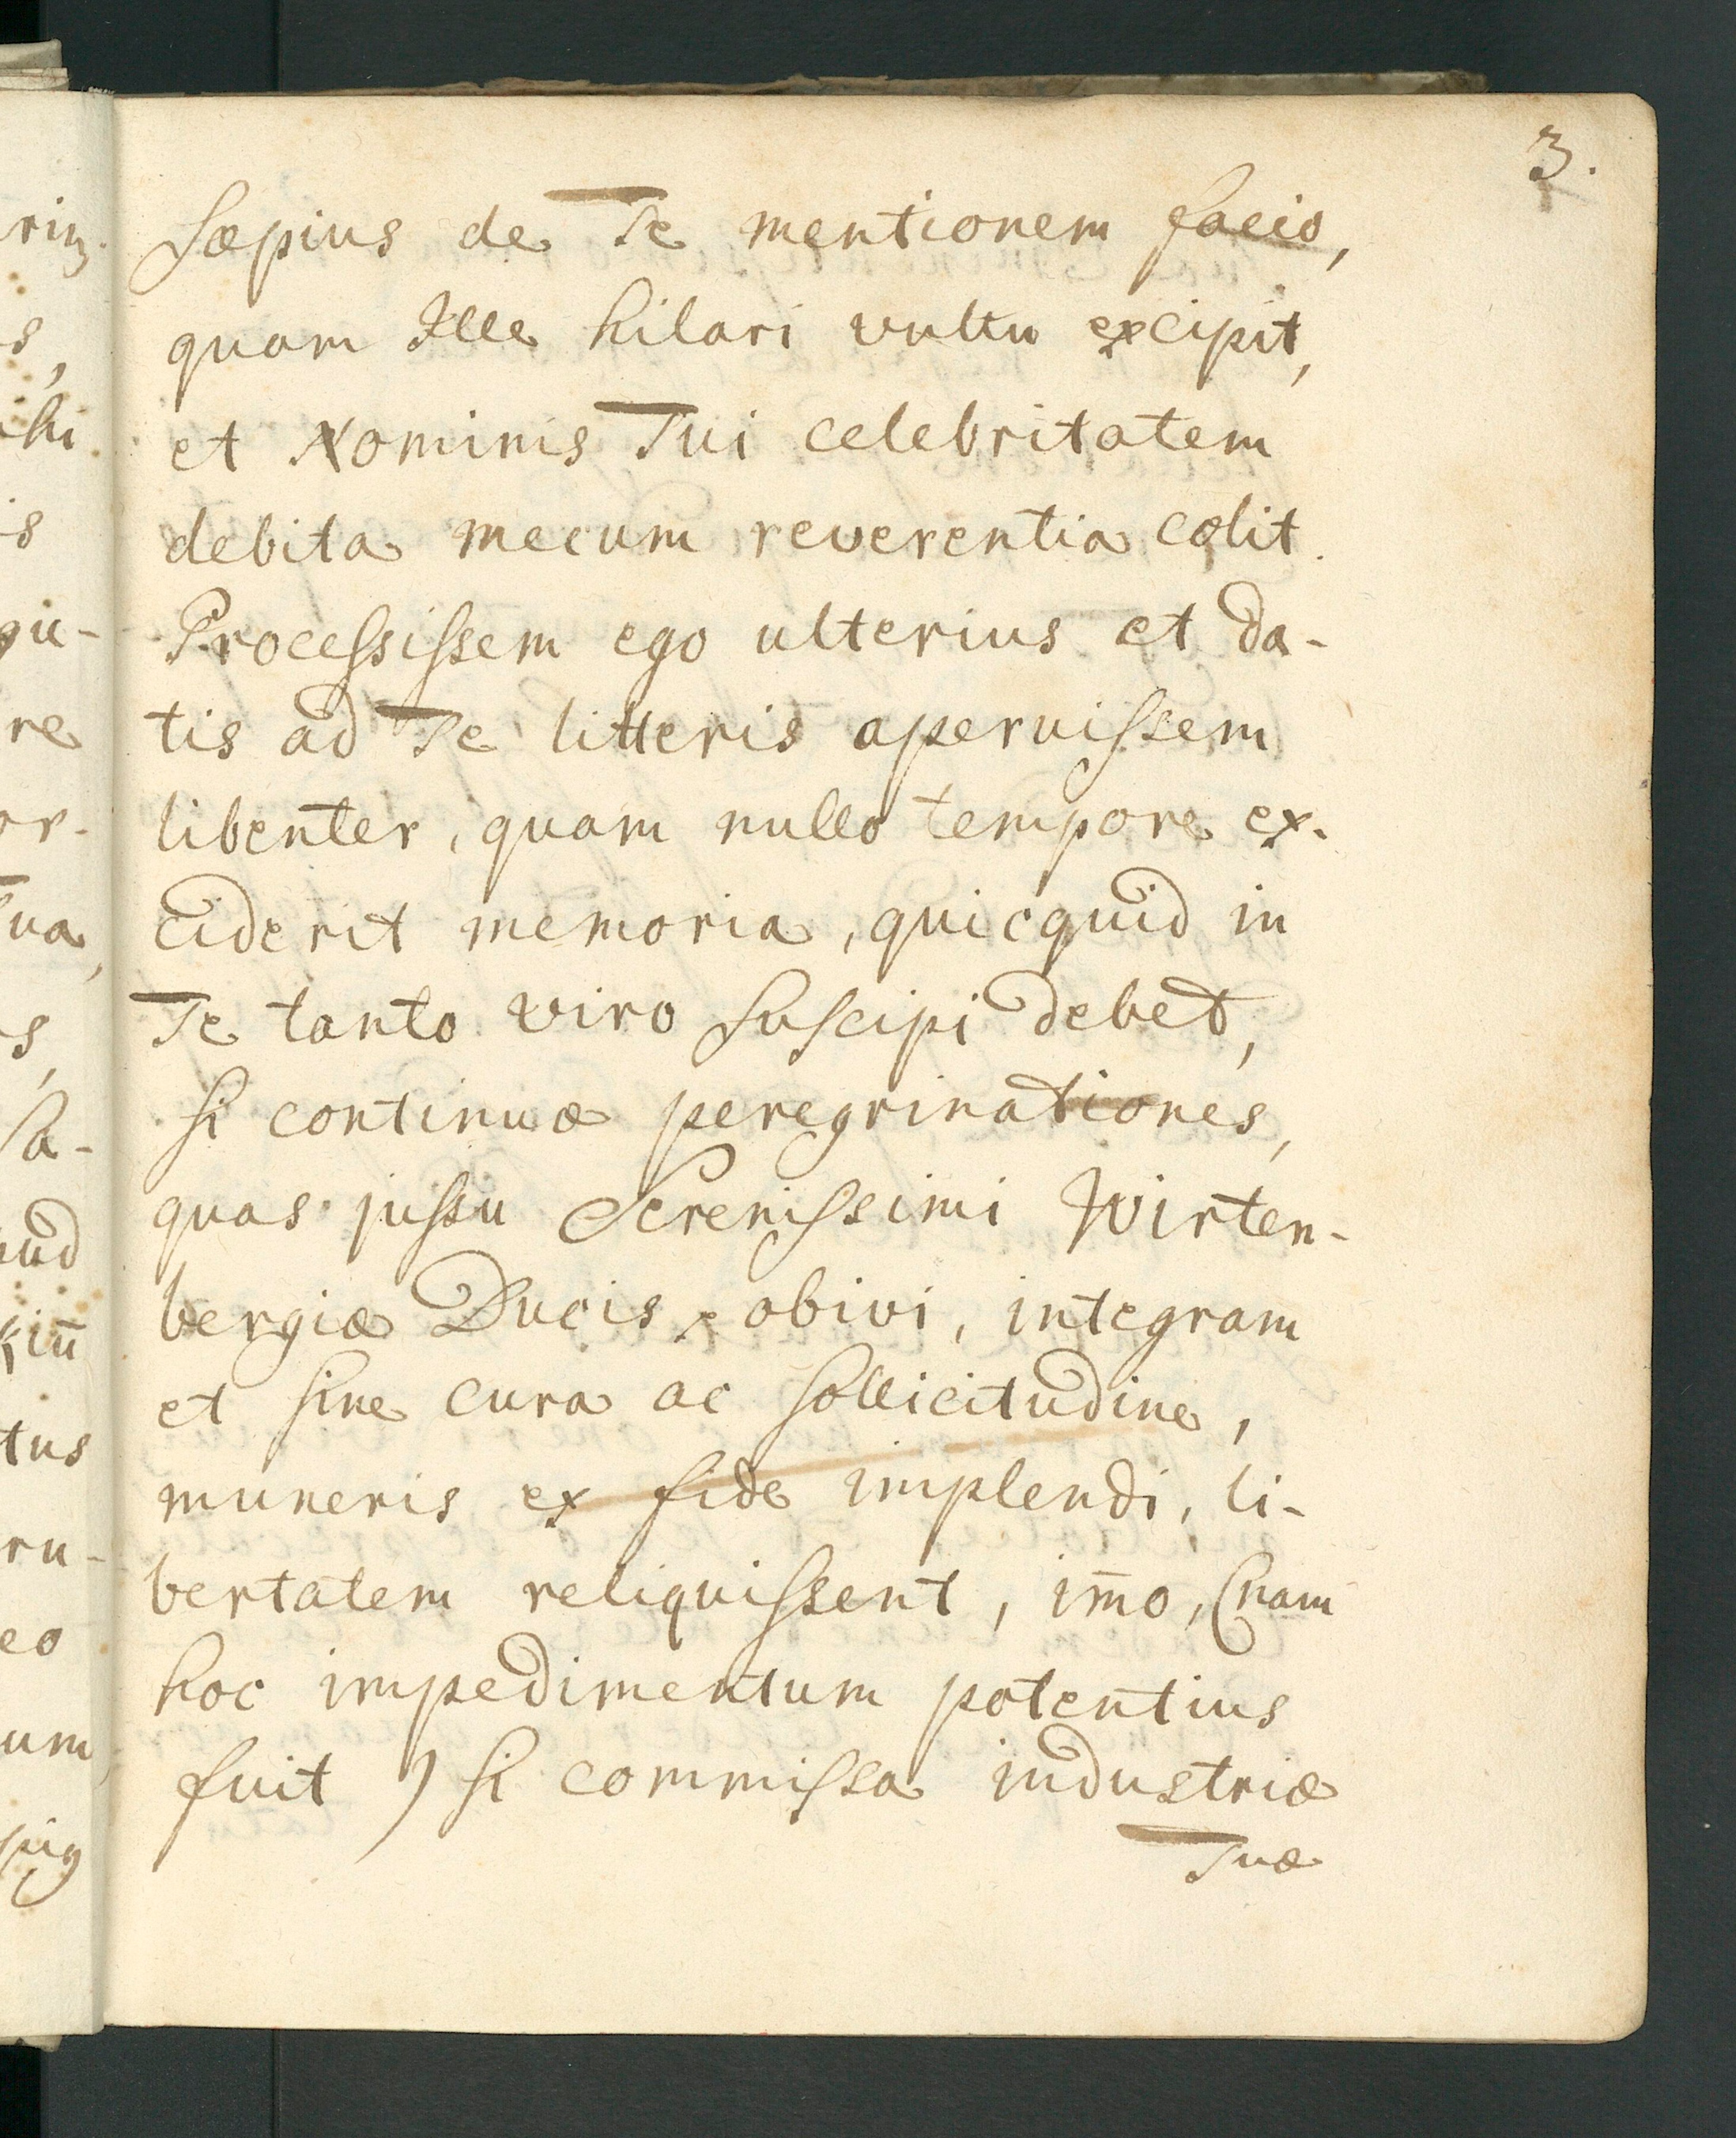 3.
Sæpius de Te mentionem facio,
quam Ille hilari vultu excipit,
et Nominis Tui celebritatem
debita mecum reverentia colit.
Processissem ego ulterius et da-
tis ad Te litteris aperuissem
libenter, quam nullo tempore ex-
ciderit memoria, quicquid in
Te tanto viro suscipi debet,
si continuæ peregrinationes,
quas jussu Serenissimi Wirten-
bergiæ Ducis obivi, integram
et sine cura ac sollicitudine,
muneris ex fide implendi, li-
bertatem reliquissent, im̄o, (nam
hoc impedimentum potentius
fuit) si commissa industriæ
Tuæ